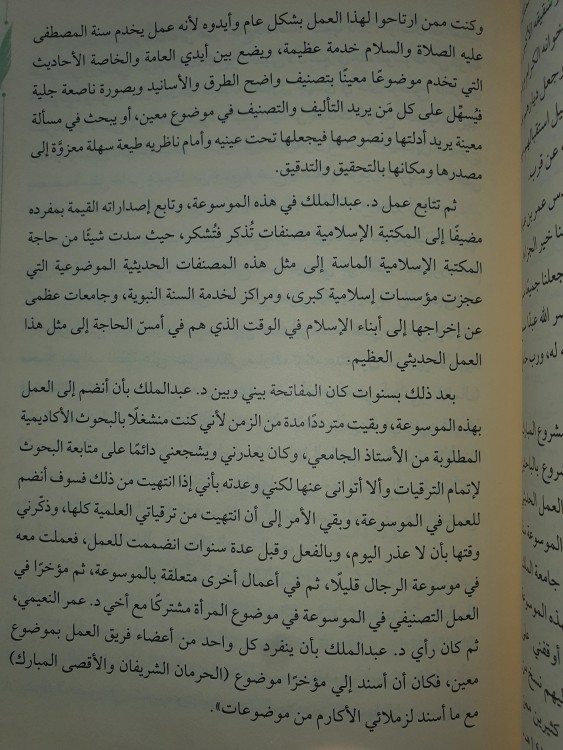 وكنت ممن ارتاحوا لهذا العمل بشكل عام وأيدوه لأنه عمل يخدم سنة المصطفى
عليه الصلاة والسلام خدمة عظيمة، ويضع بين أيدي العامة والخاصة الأحاديث
التي تخدم موضوعًا معينًا بتصنيف واضح الطرق والأسانيد وبصورة ناصعة جلية
فيُسهّل على كل مَن يريد التأليف والتصنيف في موضوع معين، أو يبحث في مسألة
معينة يريد أدلتها ونصوصها فيجعلها تحت عينيه وأمام ناظريه طيعة سهلة معزوَّة إلى
مصدرها ومكانها بالتحقيق والتدقيق.
ثم تتابع عمل د. عبدالملك في هذه الموسوعة، وتابع إصداراته القيمة بمفرده
مضيفًا إلى المكتبة الإسلامية مصنفات تُذكر فتُشكر، حيث سدت شيئًا من حاجة
المكتبة الإسلامية الماسة إلى مثل هذه المصنفات الحديثية الموضوعية التي
عجزت مؤسسات إسلامية كبرى، ومراكز لخدمة السنة النبوية، وجامعات عظمى
عن إخراجها إلى أبناء الإسلام في الوقت الذي هم في أمسّ الحاجة إلى مثل هذا
العمل الحديثي العظيم.
بعد ذلك بسنوات كان المفاتحة بيني وبين د. عبدالملك بأن أنضم إلى العمل
بهذه الموسوعة، وبقيت مترددًا مدة من الزمن لأني كنت منشغلًا بالبحوث الأكاديمية
المطلوبة من الأستاذ الجامعي، وكان يعذرني ويشجعني دائمًا على متابعة البحوث
لإتمام الترقيات وألا أتوانى عنها لكني وعدته بأني إذا انتهيت من ذلك فسوف أنضم
للعمل في الموسوعة، وبقي الأمر إلى أن انتهيت من ترقياتي العلمية كلها، وذكّرني
وقتها بأن لا عذر اليوم، وبالفعل وقبل عدة سنوات انضممت للعمل، فعملت معه
في موسوعة الرجال قليلًا، ثم في أعمال أخرى متعلقة بالموسوعة، ثم مؤخرًا في
العمل التصنيفي في الموسوعة في موضوع المرأة مشتركًا مع أخي د. عمر النعيمي،
ثم كان رأي د. عبدالملك بأن ينفرد كل واحد من أعضاء فريق العمل بموضوع
معين، فكان أن أسند إلي مؤخرًا موضوع (الحرمان الشريفان والأقصى المبارك)
مع ما أسند لزملائي الأكارم من موضوعات».